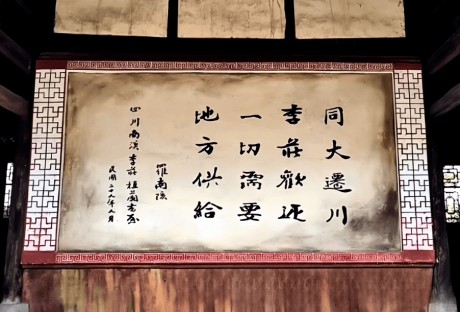 同大遷川
李莊歡迎
一切需要
地方供給
羅南陔
四川南溪李莊植蘭書屋
民國 年九月